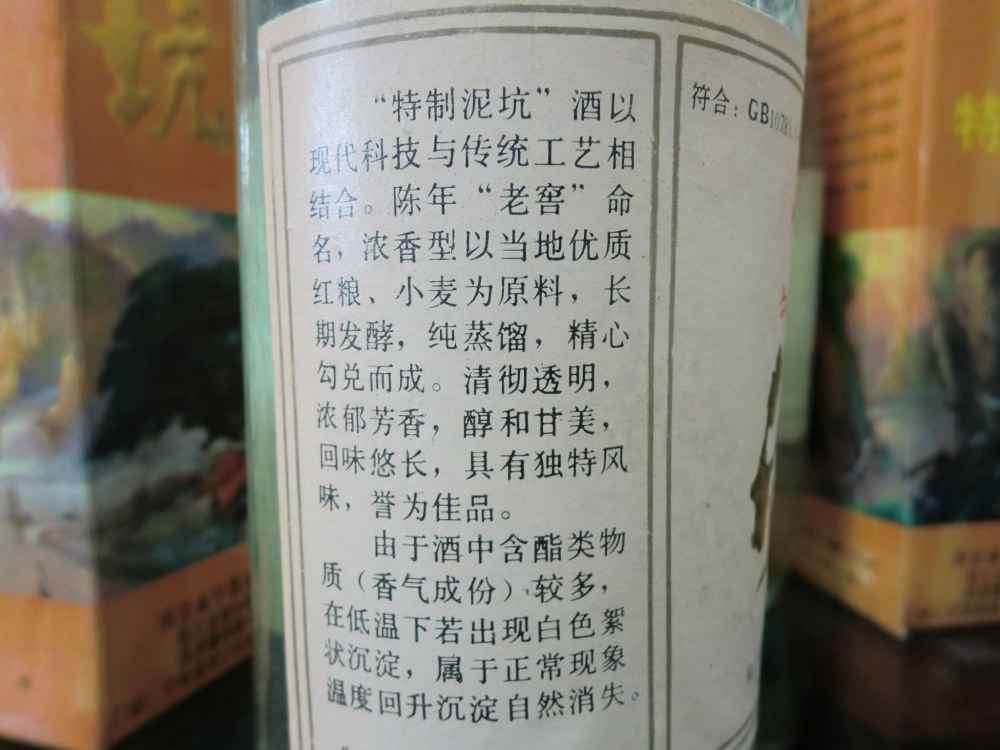 “特制泥坑”酒以
现代科技与传统工艺相
结合。陈年“老窖”命
名，浓香型以当地优质
红粮、小麦为原料，长
期发酵，纯蒸馏，精心
勾兑而成。清彻透明，
浓郁芳香，醇和甘美，
回味悠长，具有独特风
味，誉为佳品。
由于酒中含酯类物
质（香气成份）较多，
在低温下若出现白色絮
状沉淀，属于正常现象
温度回升沉淀自然消失。
符合：
坑
特